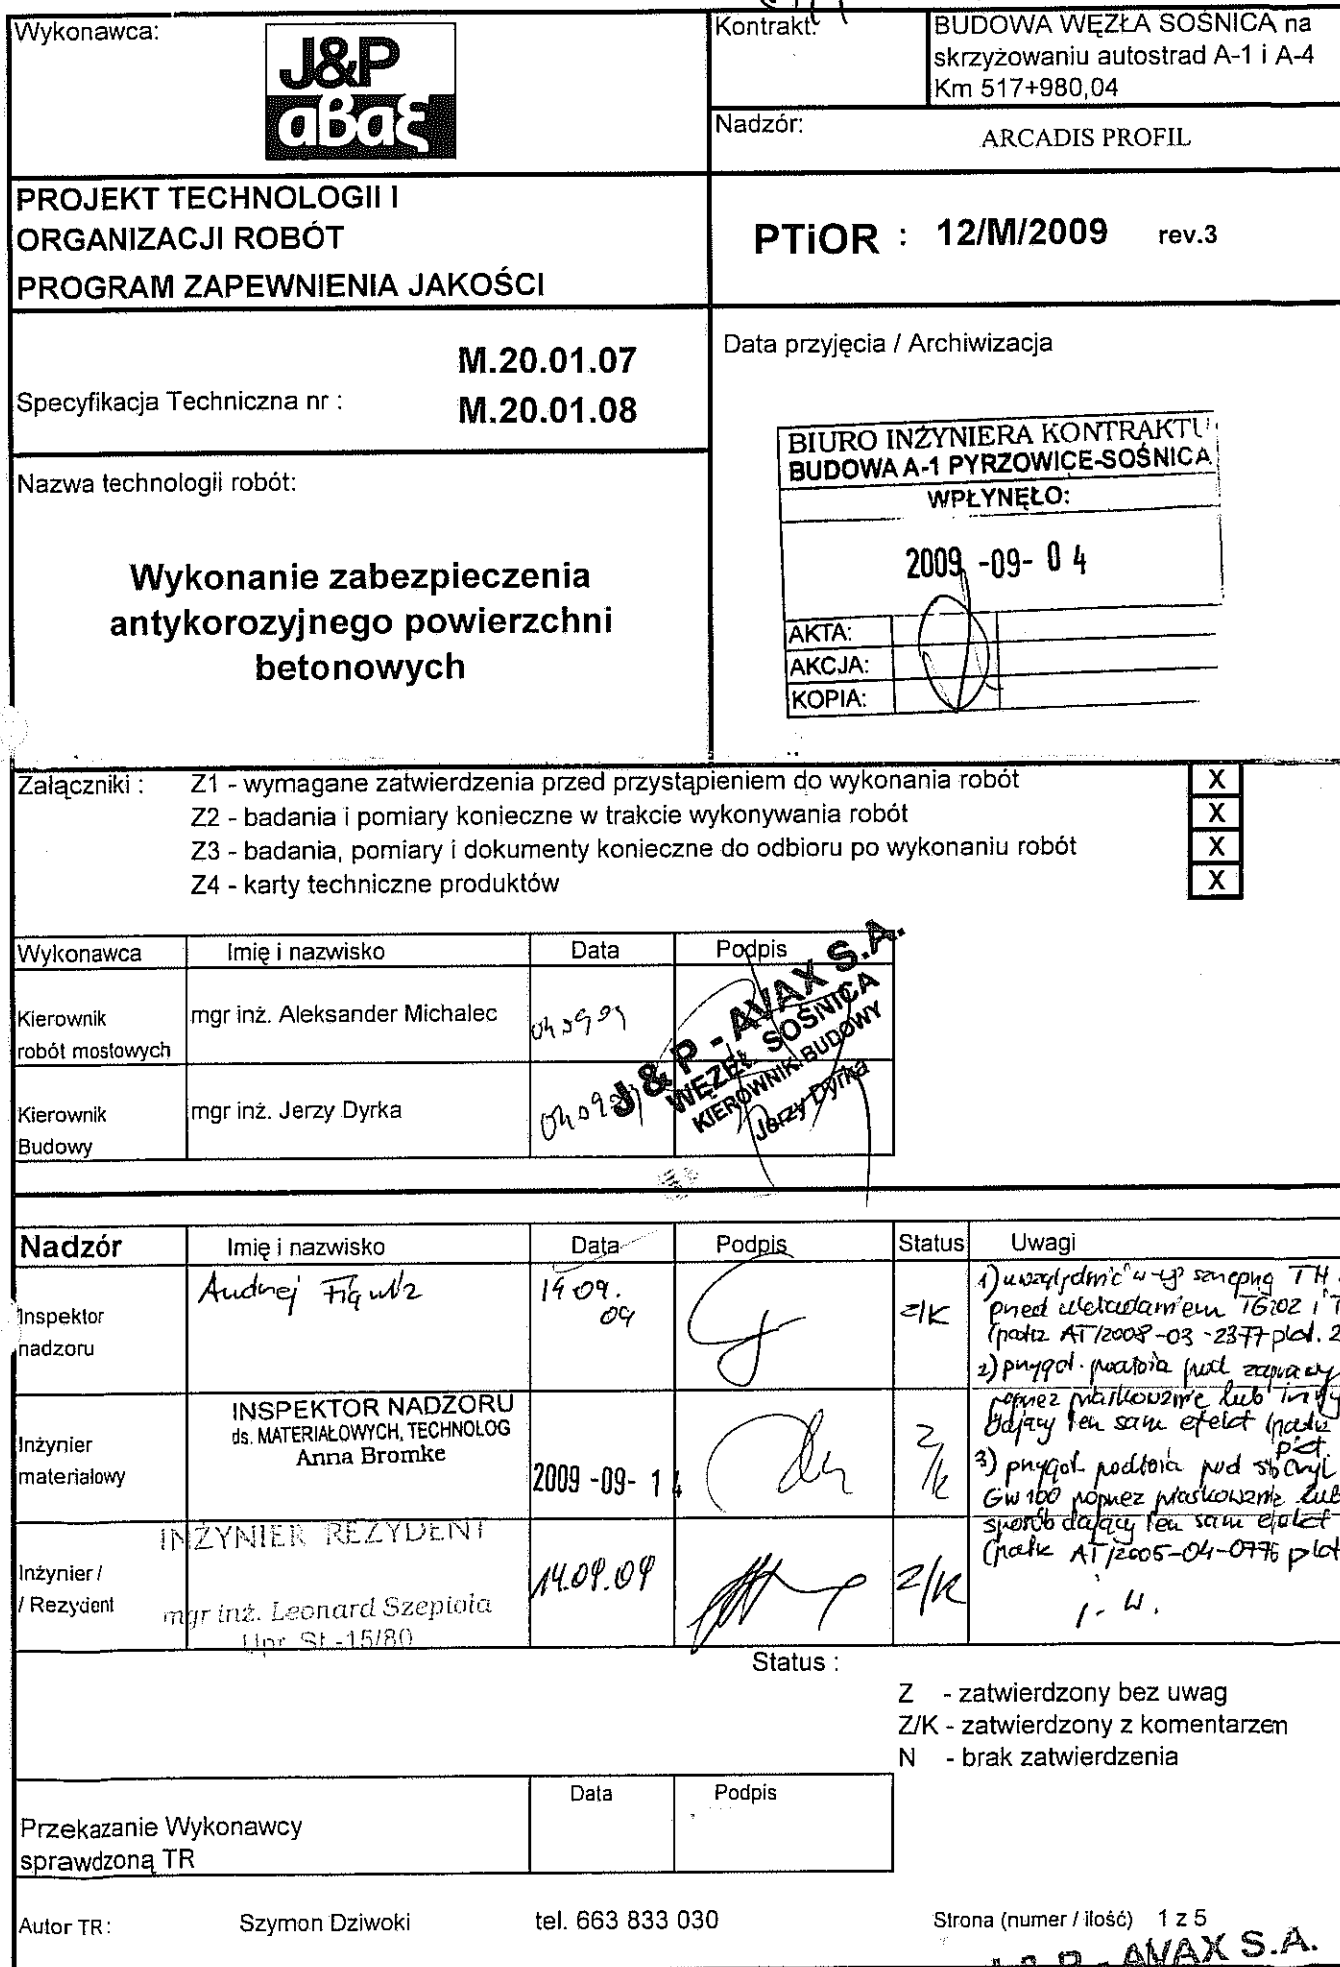 Wykonawca:
J&P
αβαξ
Kontrakt:
BUDOWA WĘZŁA SOŚNICA na
skrzyżowaniu autostrad A-1 i A-4
Km 517+980,04
Nadzór:
ARCADIS PROFIL
PROJEKT TECHNOLOGII I
ORGANIZACJI ROBÓT
PROGRAM ZAPEWNIENIA JAKOŚCI
PTiOR : 12/M/2009 rev.3
Specyfikacja Techniczna nr :
M.20.01.07
M.20.01.08
Data przyjęcia / Archiwizacja
BIURO INŻYNIERA KONTRAKTU
BUDOWA A-1 PYRZOWICE-SOŚNICA
WPŁYNĘŁO:
2009 -09- 04
AKTA:
AKCJA:
KOPIA:
Nazwa technologii robót:
Wykonanie zabezpieczenia
antykorozyjnego powierzchni
betonowych
Załączniki : Z1 - wymagane zatwierdzenia przed przystąpieniem do wykonania robót X
Z2 - badania i pomiary konieczne w trakcie wykonywania robót X
Z3 - badania, pomiary i dokumenty konieczne do odbioru po wykonaniu robót X
Z4 - karty techniczne produktów X
Wykonawca Imię i nazwisko Data Podpis
Kierownik
robót mostowych
mgr inż. Aleksander Michalec
Kierownik
Budowy
mgr inż. Jerzy Dyrka
J & P - AVAX S.A.
WĘZEŁ SOŚNICA
KIEROWNIK BUDOWY
Jerzy Dyrka
Nadzór Imię i nazwisko Data Podpis Status Uwagi
Inspektor
nadzoru
14 09.
09
Z/K
1) uwzględnić w-wę szczepną TH
przed układaniem TG202 i T
(patrz AT/2008-03-2377 pkt. 2
2) przygot. podłoża pod zaprawy
poprzez piaskowanie lub inny
dający ten sam efekt (patrz
pkt.
3) przygot. podłoża pod
GW100 poprzez piaskowanie lub
sposób dający ten sam efekt
(patrz AT/2005-04-0776 pkt
Inżynier
materiałowy
INSPEKTOR NADZORU
ds. MATERIAŁOWYCH, TECHNOLOG
Anna Bromke
2009 -09- 14
Z/K
Inżynier /
/ Rezydent
INŻYNIER REZYDENT
mgr inż. Leonard Szepioła
Upr. St.-15/80
14.09.09
Z/K
j. w.
Status :
Z - zatwierdzony bez uwag
Z/K - zatwierdzony z komentarzen
N - brak zatwierdzenia
Data Podpis
Przekazanie Wykonawcy
sprawdzoną TR
Autor TR: Szymon Dziwoki tel. 663 833 030 Strona (numer / ilość) 1 z 5
J & P - AVAX S.A.